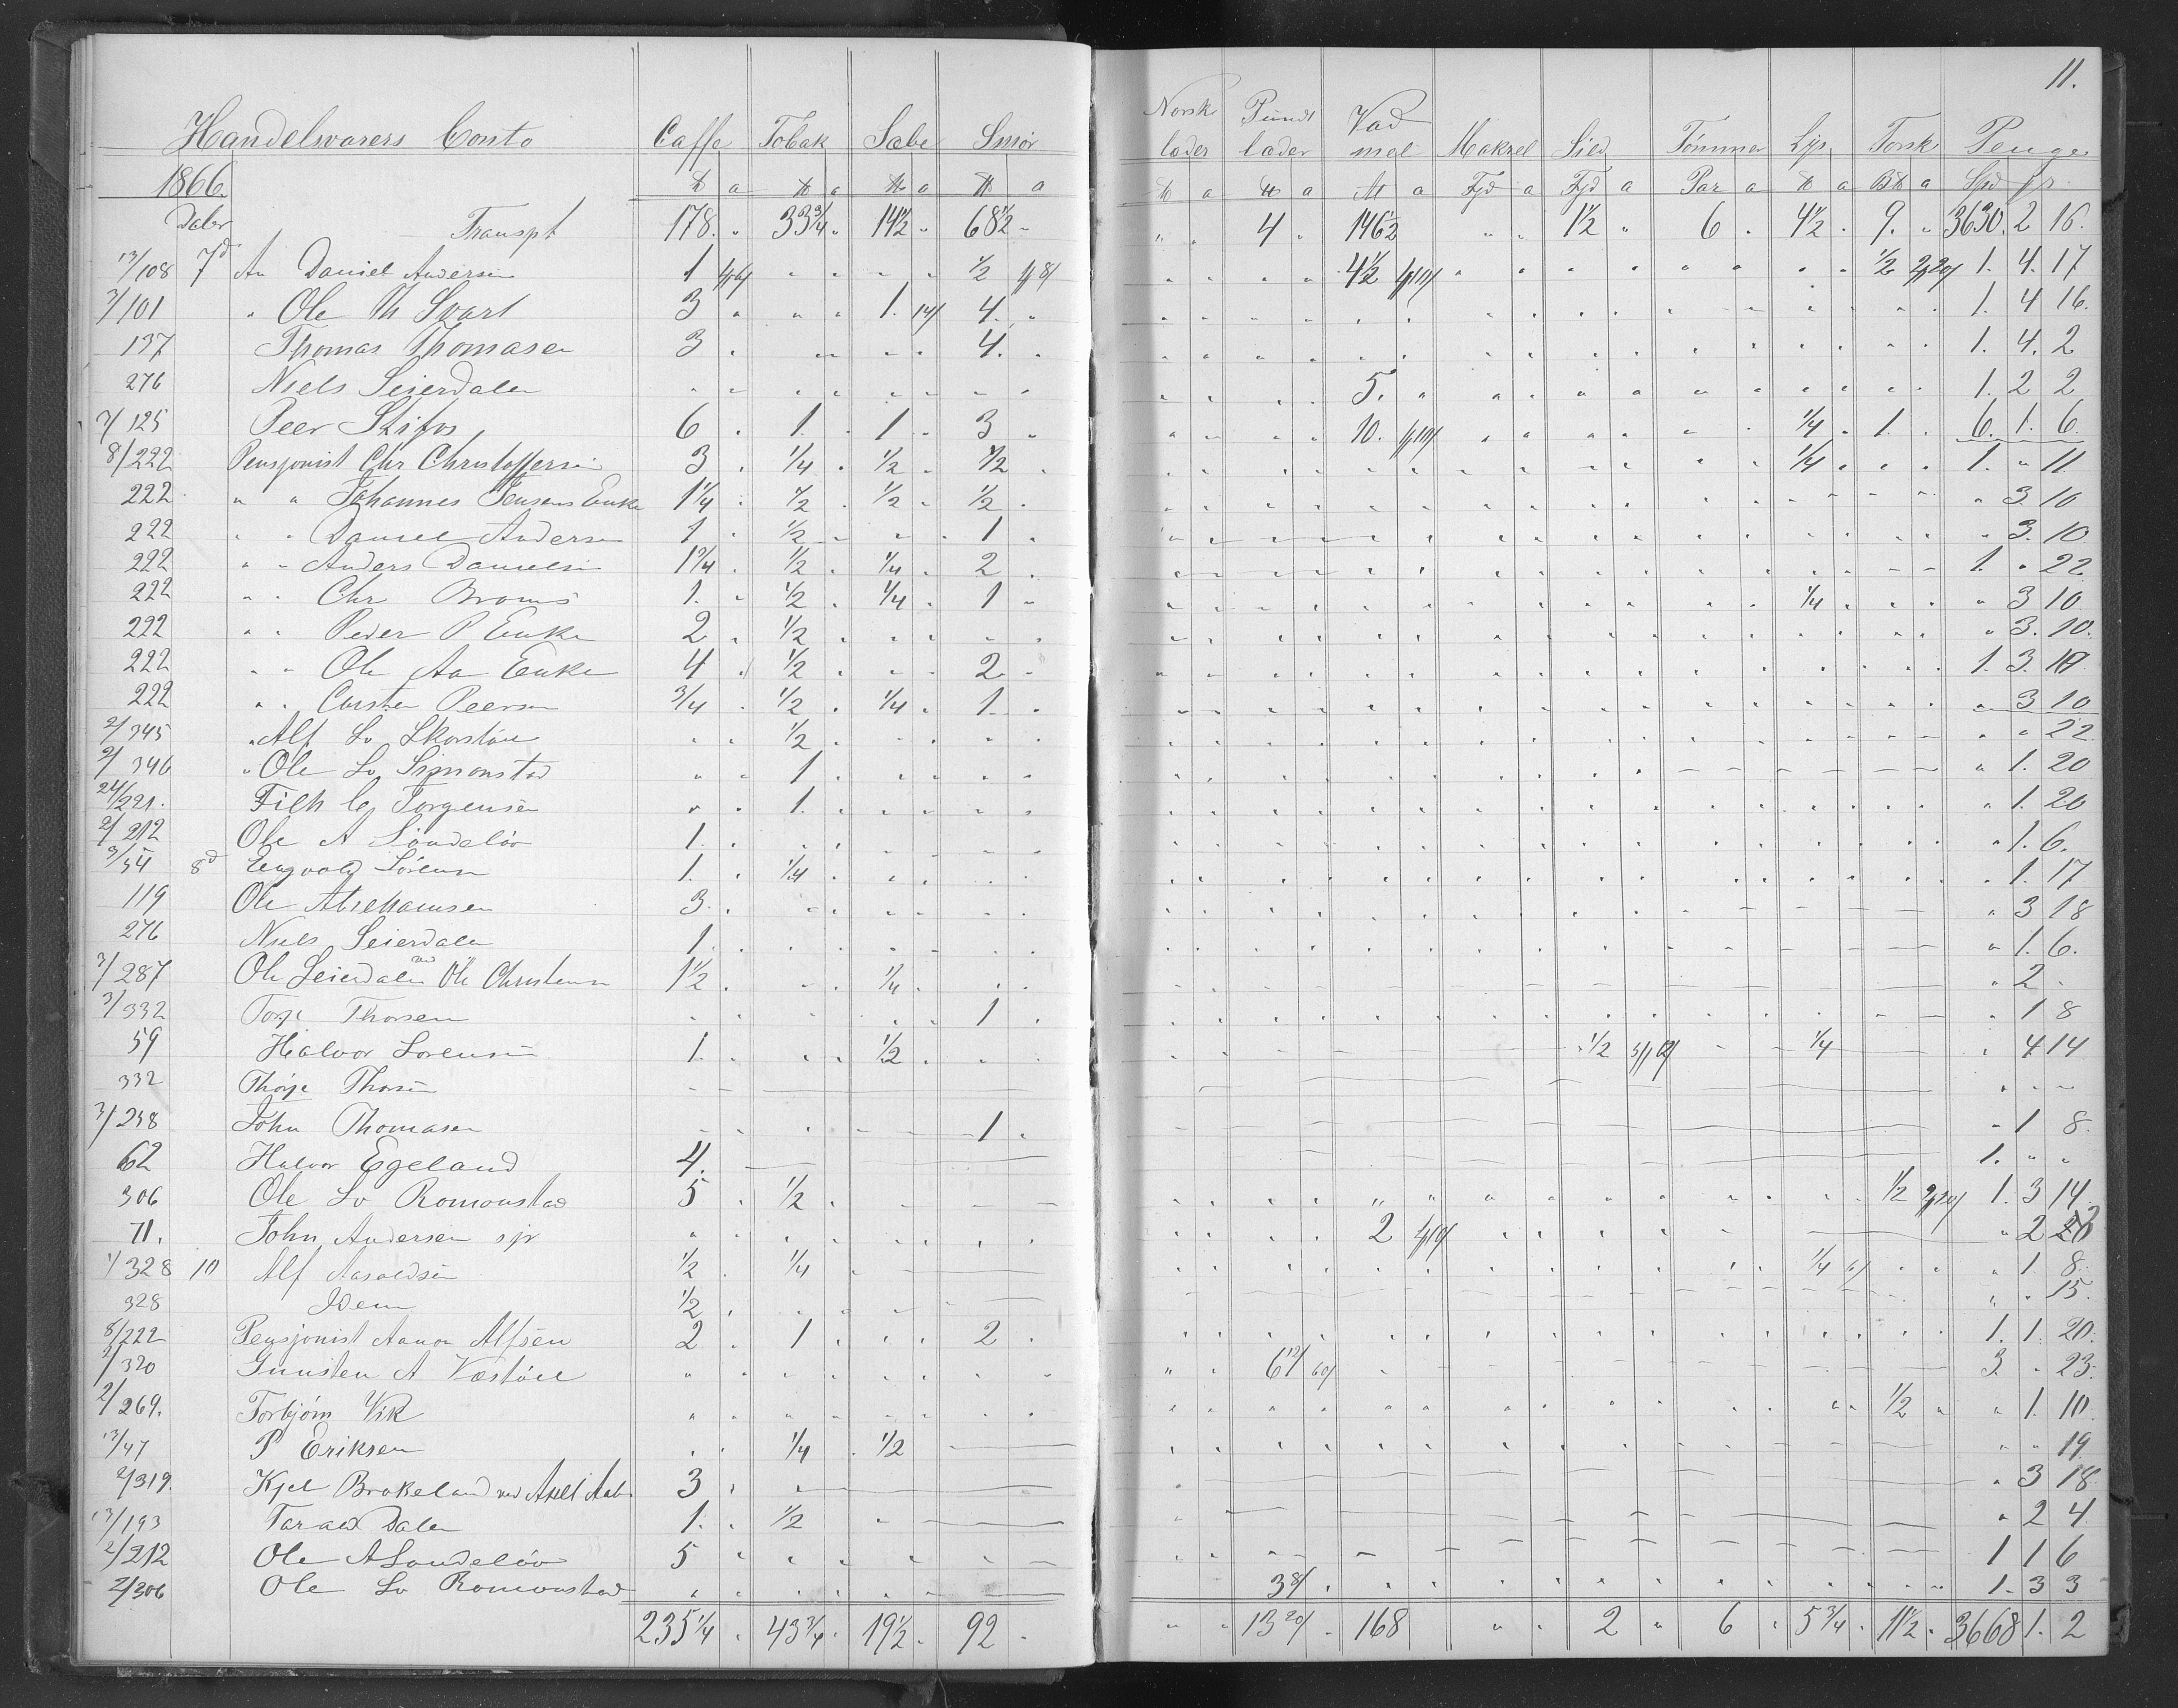 11.
Handelsvarers Conto Caffe Tobak Sæbe Smør Norsk læder Pund læder Vad mel Makrel Sild Tømmer Lys Torsk Penge
1866 ℔ a ℔ a ℔ a ℔ a ℔ a ℔ a Al a Fjd a Fjd a Par a ℔ a B℔ a Spd
Daler Transpt 178. " 33 3/4 " 14 1/2 " 68 1/2 " " " 4 " 146 1/2 " " 1 1/2 " 6 " 4 1/2 " 9. " 3630. 2 16.
13/108 7d An Daniel Andersen 1 " " " " 1/2 " " " " 4 1/2 " " " " " " " " 1/2 1. 4. 17
3/101 " Ole Th Svart 3 " " " 1. 14/ 4. " 1. 4 16.
137 Thomas Thomasen 3 " " " " " 4. " 1. 4. 2
276 Niels Seierdalen 5. " 1. 2 2
3/125 Peer Stifos 6 " 1. " 1 " 3 " 10. 1/4 " 1. " 6. 1. 6.
8/222 Pensjonist Chr Christoffersen 3 " 1/4 " 1/2 " 1/2 " 1/4 " 1. " 11
222 " " Johannes Jensens Enke 1 1/4 " 1/2 " 1/2 " 1/2 " " 3 10
222 " " Daniel Andersen 1 " 1/2 " " " 1 " " 3. 10
222 " " Anders Danielsen 1 1/4 " 1/2 " 1/4 " 2 " 1. " 22
222 " " Chr Broms 1. " 1/2 " 1/4 " 1 " 1/4 " " 3 10
222 " " Peder P Enke 2 " 1/2 " " 3. 10.
222 " " Ole Aa Enke 4 " 1/2 " " " 2 " 1. 3. 10
222 " " Carsten Peersen 3/4 " 1/2 " 1/4 " 1. " " 3 10
2/345 " Alf Lo Skorstøl " " 1/2 " " " 22
2/346 " Ole Lo Simonstad " " 1 " " 1. 20
24/221. Filh Cg Jorgensen " " 1. " " 1. 20
2/212 Ole A Søndeløv 1. " " 1. 6.
3/54 8d Engvald Sørensen 1. " 1/4 " " 1. 17
119 Ole Abrehamsen 3. " " 3 18
276 Niels Seierdalen 1. " " 1. 6.
3/287 Ole Seierdalen ved Ole Christensen 1 1/2 " " " 1/4 " " 2 "
3/332 Torje Thorsen 1 " " 1 8
59 Halvor Lorensen 1. " " " 1/2 " 1/2 1/4 " 4 14
332 Thorje Thorsen " " "
3/238 John Thomasen 1 " " 1 8.
62 Halvor Egeland 4. 1. " "
306 Ole Lo Romonstad 5 " 1/2 " 1/2 1. 3 14.
71. John Andersen sjr 2 " 2
1/328 10 Alf Aasoldsen 1/2 " 1/4 " 1/4 6/ " 1. 8.
328 Idem 1/2 " " " 15.
8/222 Pensjonist Aanon Alfsen 2 " 1 " " " 2 " 1. 1. 20.
2/320 Gunsten A Vestøl 6 12/ 60/ 3. " 23.
2/269. Torbjørn Vik 1/2 " " 1. 10
13/47 P Eriksen " " 1/4 " 1/2 " " 19
2/319. Kjel Brokeland ved Axell Aab 3 " " 3 18
13/193 Tarald Dalen 1. " 1/2 " 2 4
2/212 Ole A Søndeløv 5 " 1 1 6
2/306 Ole Lo Romonstad 3 8/ 1. 3 3
235 1/4 " 43 3/4 " 19 1/2 " 92 " " " 13 20/ " 168 " " 2 " 6 " 5 3/4 " 11 1/2 " 3668 1. 2